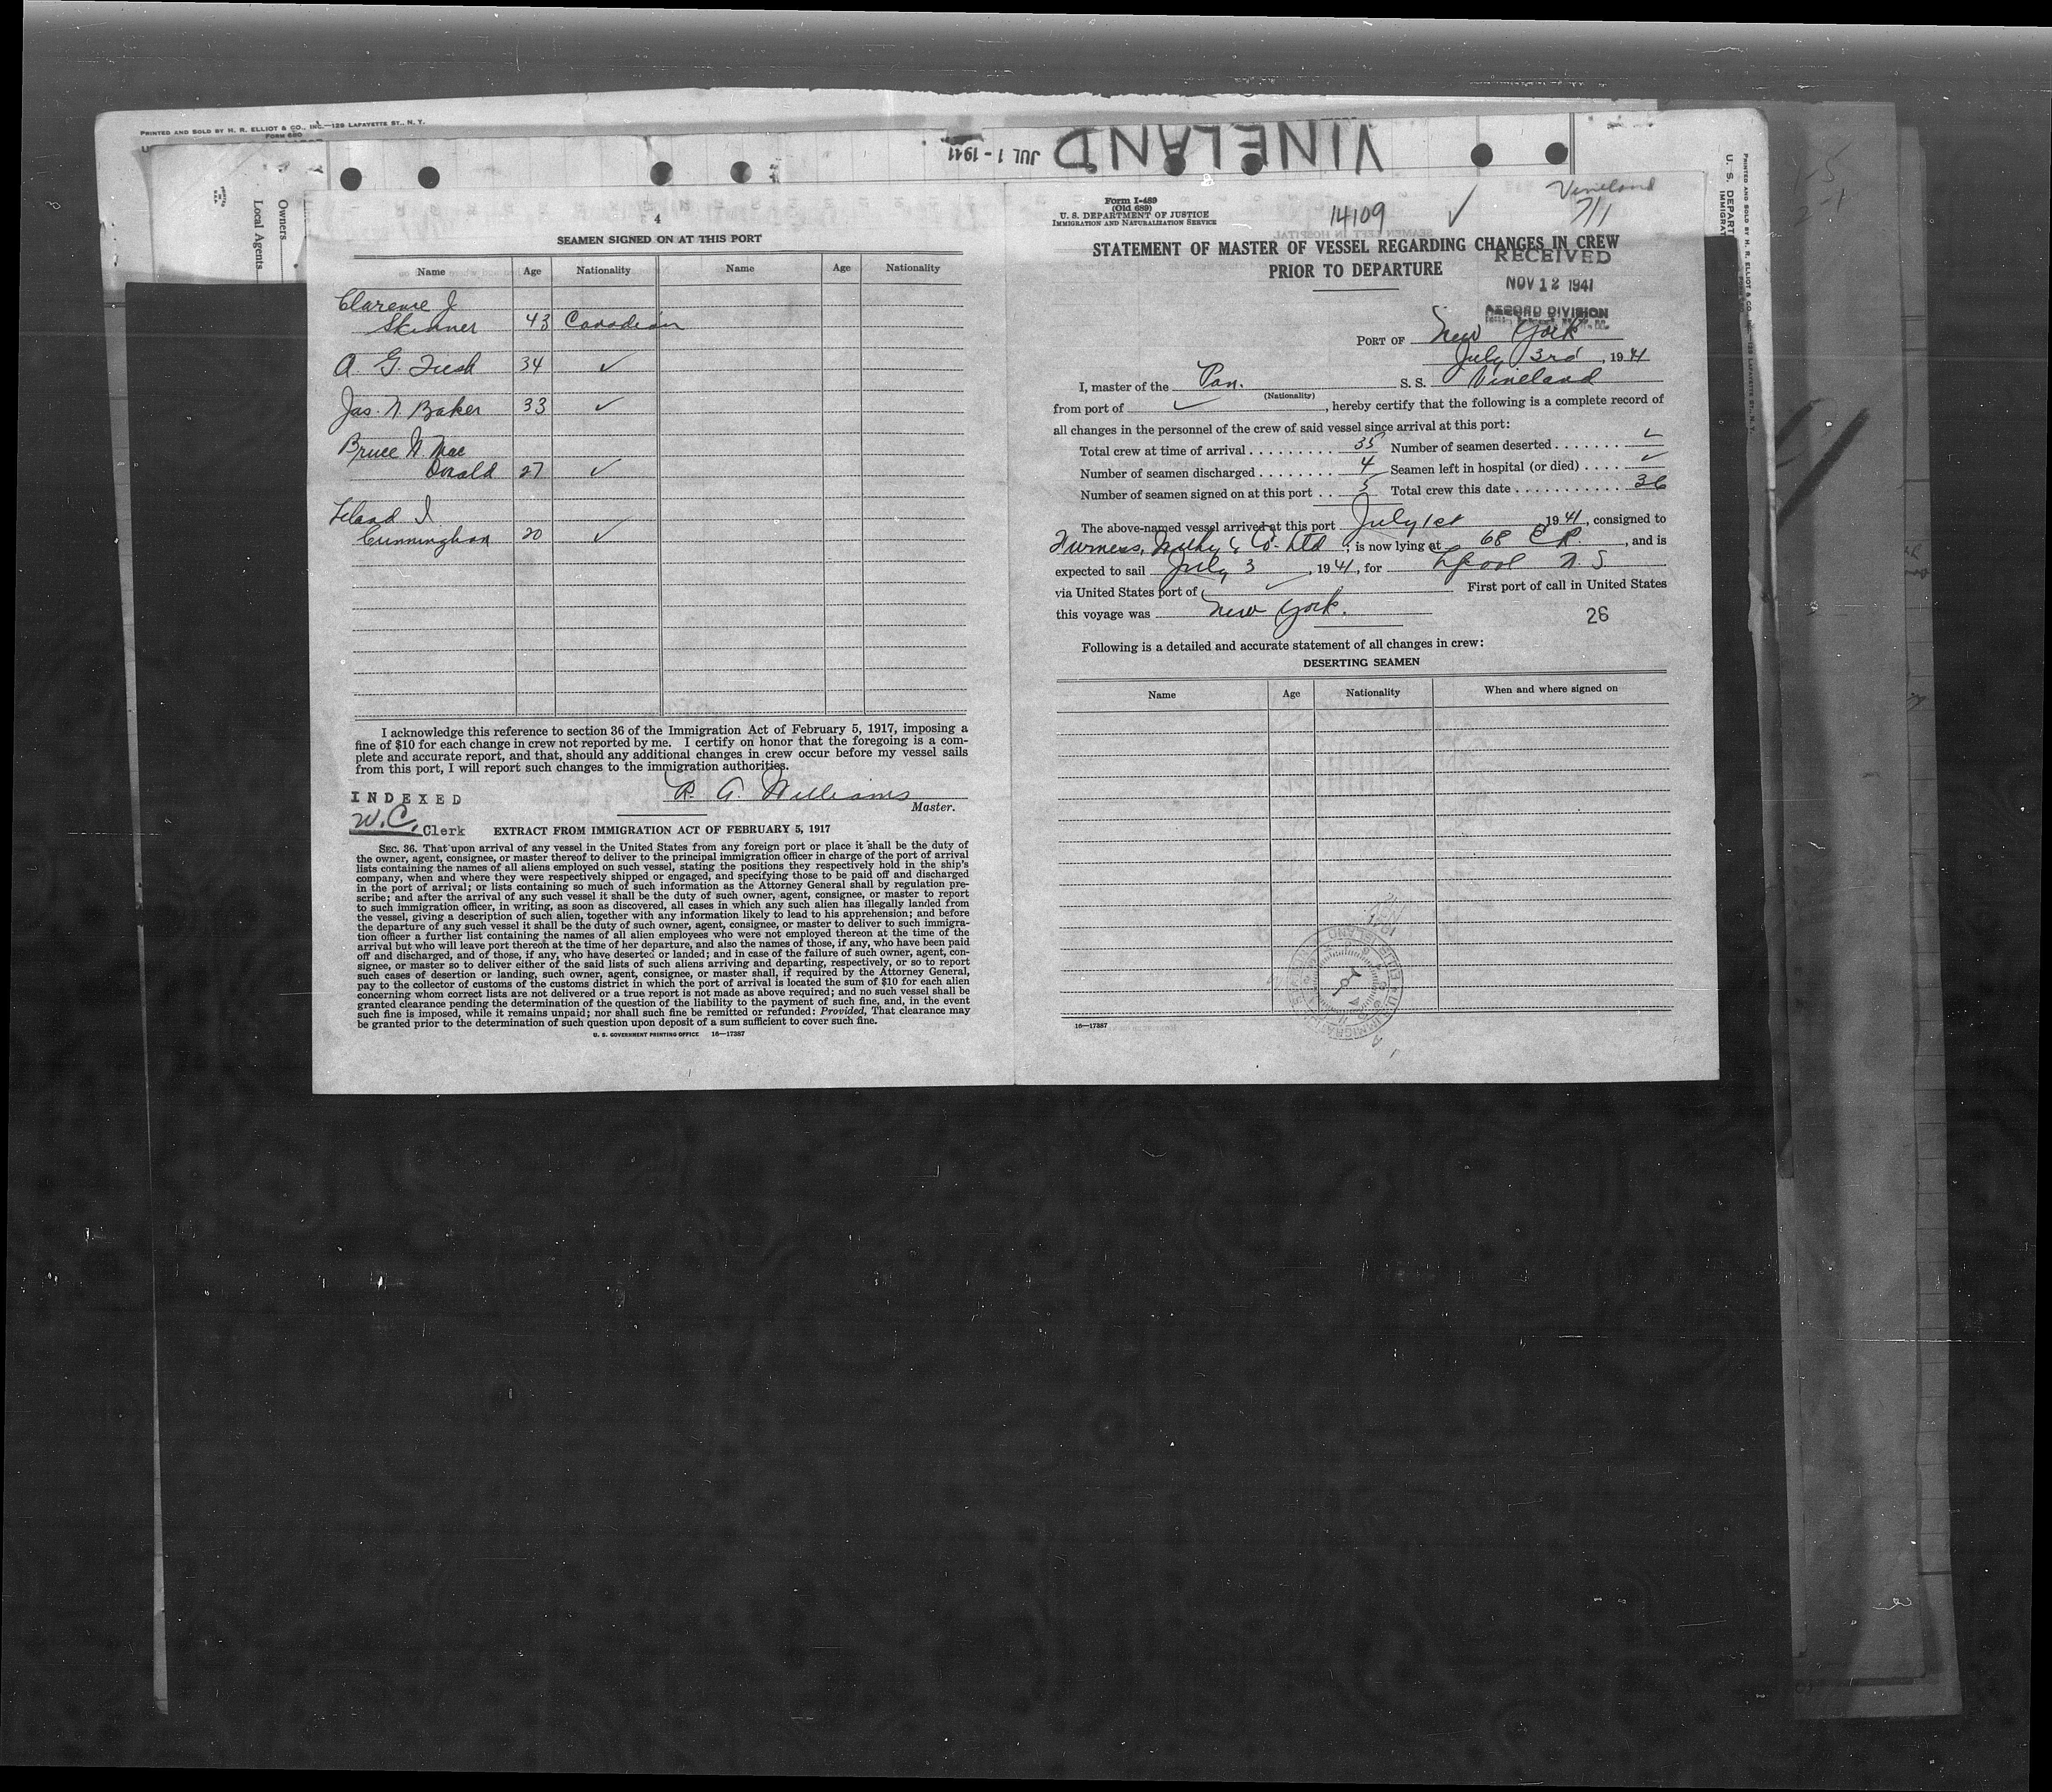 PRINTED AND SOLD BY H. R. ELLIOT & CO., INC.—129 LAFAYETTE ST., N. Y.
FORM 680
VINELAND
JUL 1 - 1941
Owners
Local Agents
U. S. DEPART
IMMIGRAT
PRINTED AND SOLD BY H. R. ELLIOT & CO., INC.—129 LAFAYETTE ST., N. Y.
4
SEAMEN SIGNED ON AT THIS PORT
Name Age Nationality Name Age Nationality
Clarence J
Skinner 43 Canadian
A. G. 34 ✓
Jas. N. Baker 33 ✓
Bruce W. Mac
Donald 27 ✓
Leland I.
Cunningham 20 ✓
I acknowledge this reference to section 36 of the Immigration Act of February 5, 1917, imposing a
fine of $10 for each change in crew not reported by me. I certify on honor that the foregoing is a com-
plete and accurate report, and that, should any additional changes in crew occur before my vessel sails
from this port, I will report such changes to the immigration authorities.
R. A. Williams
Master.
INDEXED
W.C. Clerk
EXTRACT FROM IMMIGRATION ACT OF FEBRUARY 5, 1917
SEC. 36. That upon arrival of any vessel in the United States from any foreign port or place it shall be the duty of
the owner, agent, consignee, or master thereof to deliver to the principal immigration officer in charge of the port of arrival
lists containing the names of all aliens employed on such vessel, stating the positions they respectively hold in the ship's
company, when and where they were respectively shipped or engaged, and specifying those to be paid off and discharged
in the port of arrival; or lists containing so much of such information as the Attorney General shall by regulation pre-
scribe; and after the arrival of any such vessel it shall be the duty of such owner, agent, consignee, or master to report
to such immigration officer, in writing, as soon as discovered, all cases in which any such alien has illegally landed from
the vessel, giving a description of such alien, together with any information likely to lead to his apprehension; and before
the departure of any such vessel it shall be the duty of such owner, agent, consignee, or master to deliver to such immigra-
tion officer a further list containing the names of all alien employees who were not employed thereon at the time of the
arrival but who will leave port thereon at the time of her departure, and also the names of those, if any, who have been paid
off and discharged, and of those, if any, who have deserted or landed; and in case of the failure of such owner, agent, con-
signee, or master so to deliver either of the said lists of such aliens arriving and departing, respectively, or so to report
such cases of desertion or landing, such owner, agent, consignee, or master shall, if required by the Attorney General,
pay to the collector of customs of the customs district in which the port of arrival is located the sum of $10 for each alien
concerning whom correct lists are not delivered or a true report is not made as above required; and no such vessel shall be
granted clearance pending the determination of the question of the liability to the payment of such fine, and, in the event
such fine is imposed, while it remains unpaid; nor shall such fine be remitted or refunded: Provided, That clearance may
be granted prior to the determination of such question upon deposit of a sum sufficient to cover such fine.
U. S. GOVERNMENT PRINTING OFFICE 16—17387
Form I-489
(Old 689)
U. S. DEPARTMENT OF JUSTICE
IMMIGRATION AND NATURALIZATION SERVICE
14109 ✓
Vineland
7/1
STATEMENT OF MASTER OF VESSEL REGARDING CHANGES IN CREW
PRIOR TO DEPARTURE
RECEIVED
NOV 12 1941
RECORD DIVISION
PORT OF New York
July 3rd, 1941
I, master of the Pan. S. S. Vineland
(Nationality)
from port of ✓, hereby certify that the following is a complete record of
all changes in the personnel of the crew of said vessel since arrival at this port:
Total crew at time of arrival 35 Number of seamen deserted ✓
Number of seamen discharged 4 Seamen left in hospital (or died) ✓
Number of seamen signed on at this port 5 Total crew this date 36
The above-named vessel arrived at this port July 1st 1941, consigned to
Furness, Withy & Co. Ltd, is now lying at 68 E R., and is
expected to sail July 3, 1941, for Lpool N. S.
via United States port of ✓ First port of call in United States
this voyage was New York.
26
Following is a detailed and accurate statement of all changes in crew:
DESERTING SEAMEN
Name Age Nationality When and where signed on
16—17387